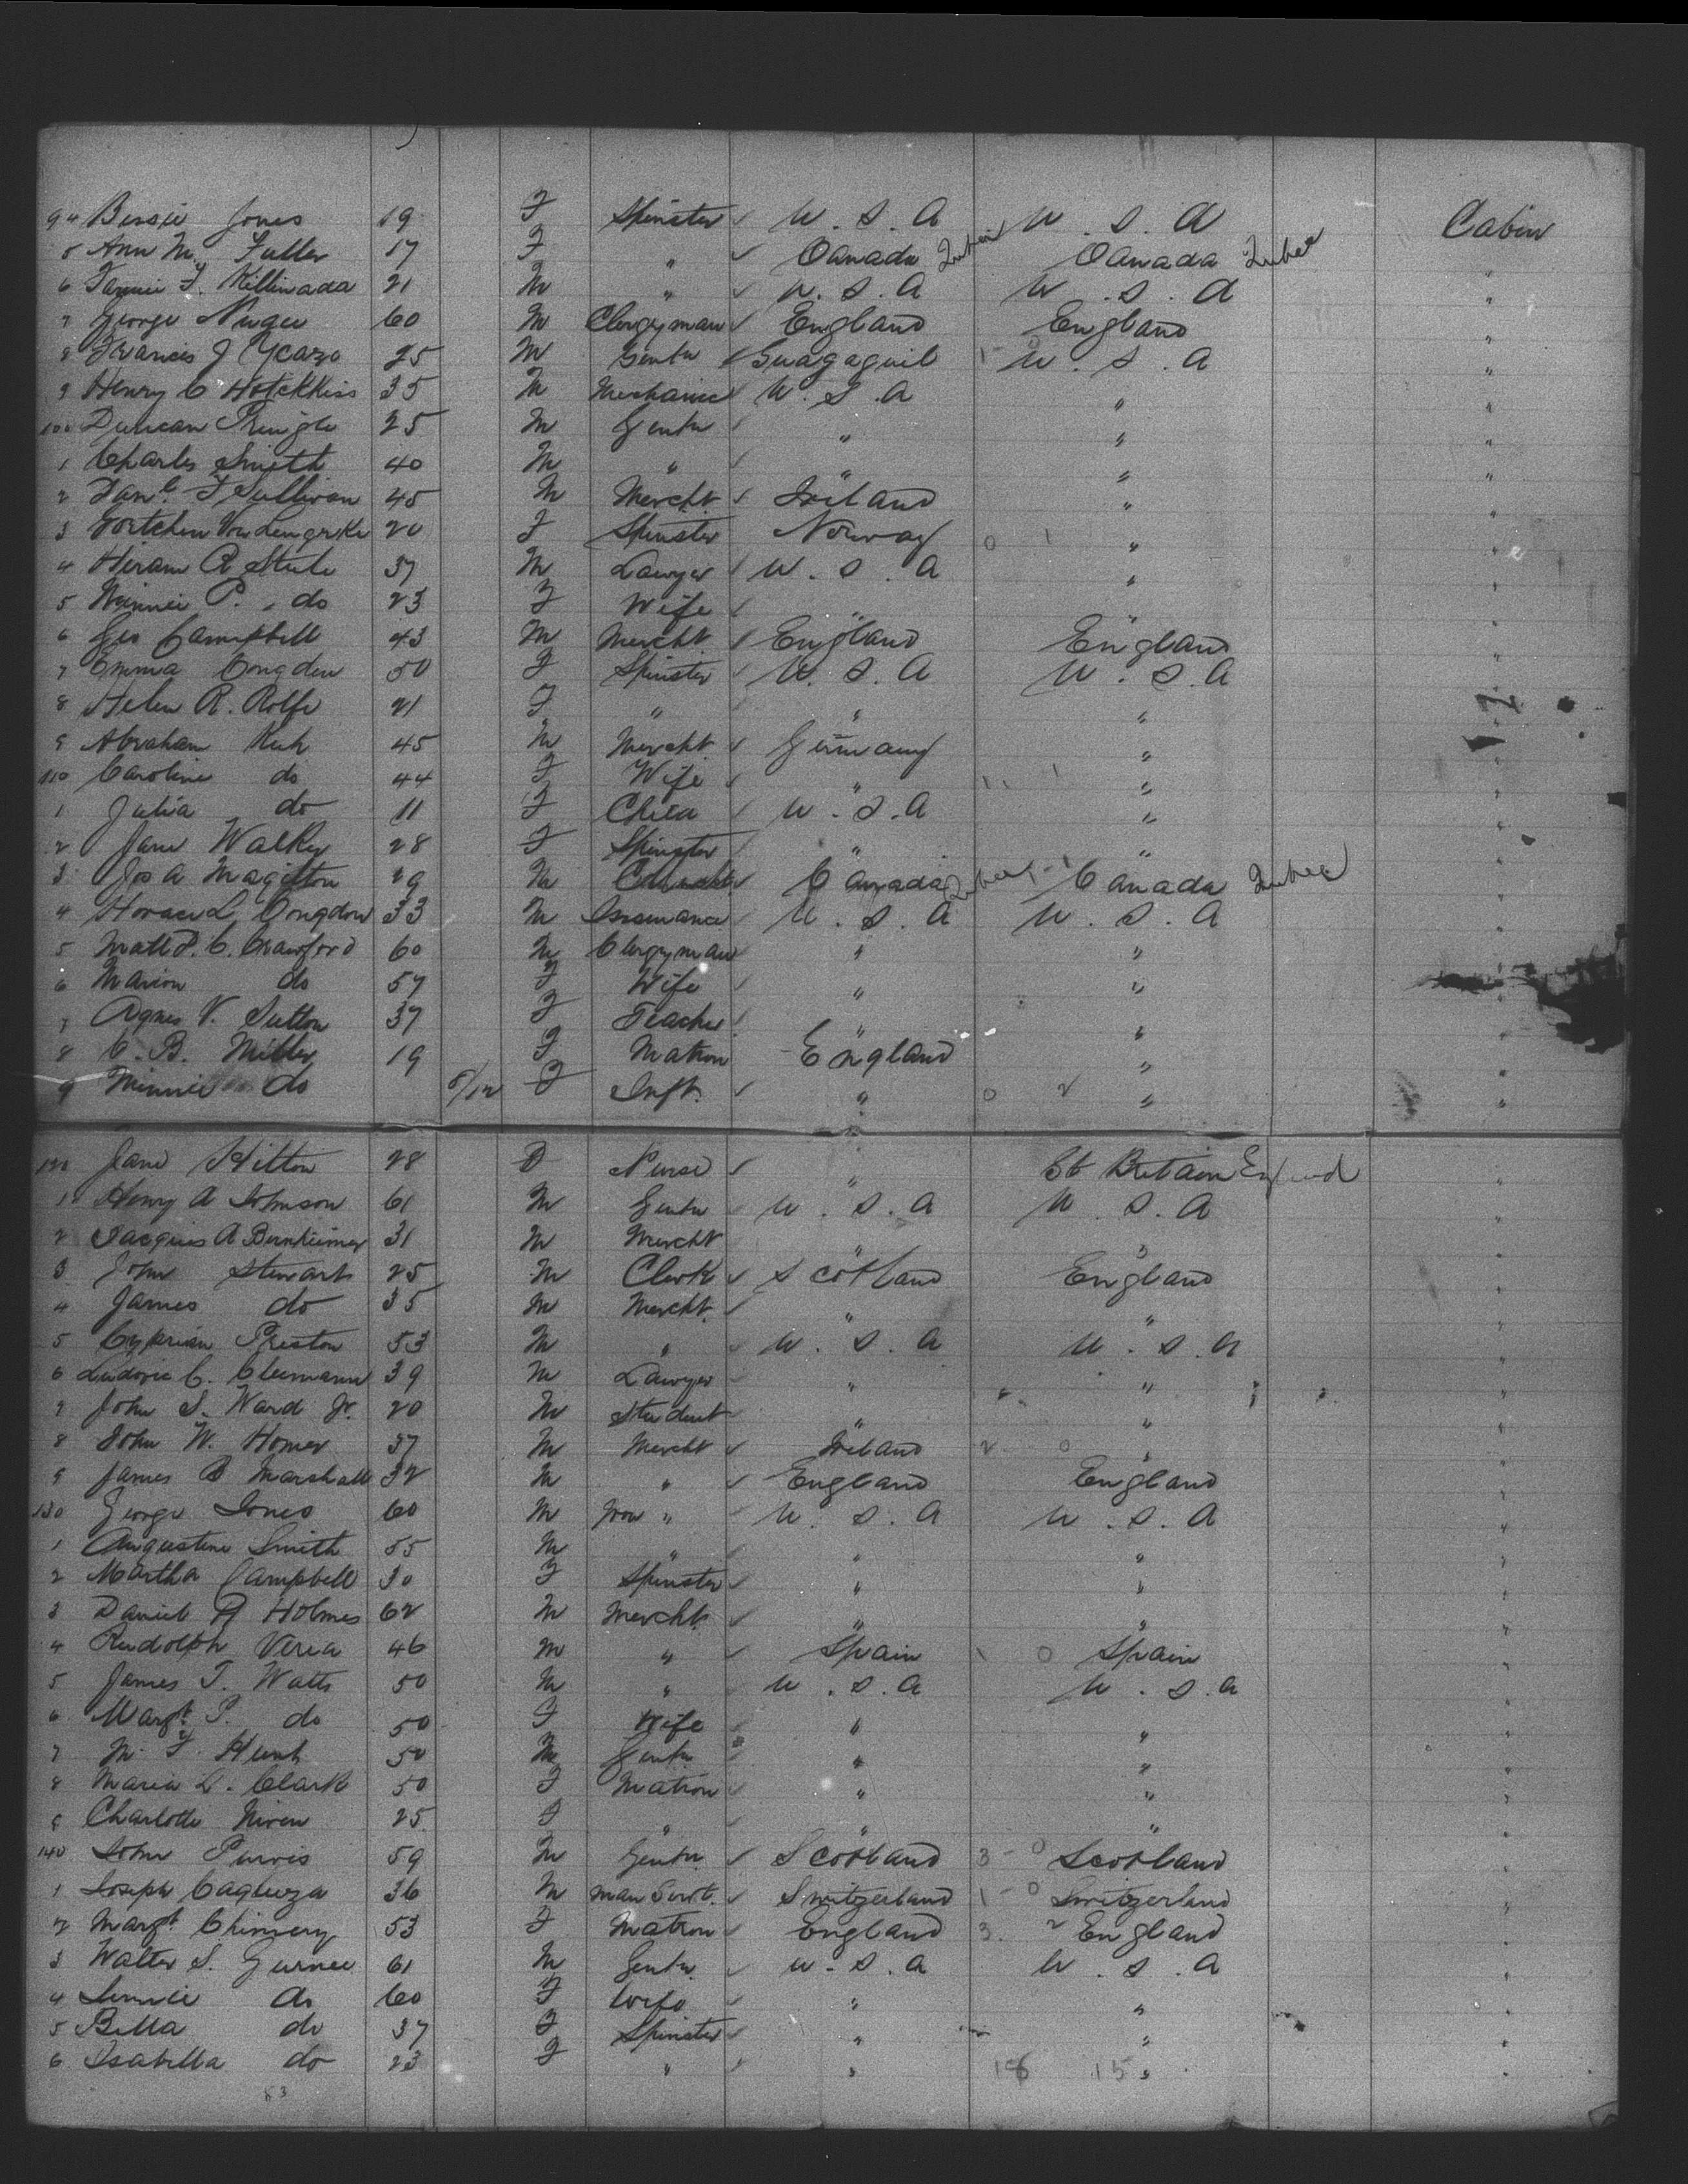 94 Bessie Jones 19 F Spinster ✓ U.S.A U.S.A Cabin
5 Ann M. Fuller 17 F " ✓ Canada Quebec Canada Quebec "
6 Fannie F. Killinada 21 M " ✓ U.S.A U.S.A "
7 George Nugee 60 M Clergyman ✓ England England "
8 Francis J Ycaza 25 M Gentn ✓ Guayaquil 1 - 0 U.S.A "
9 Henry C Hotchkiss 35 M Mechanic U.S.A " "
100 Duncan Pringle 25 M Gentn ✓ " " "
1 Charles Smith 40 M " ✓ " " "
2 Danl. F Sullivan 45 M Mercht ✓ Ireland " "
3 20 F Spinster Norway 0 1 " "
4 Hiram R Steele 37 M Lawyer ✓ U.S.A " "
5 Minnie P. do 23 F Wife ✓ " " "
6 Geo Campbell 43 M Mercht. ✓ England England "
7 Emma Congdon 50 F Spinster ✓ U.S.A U.S.A "
8 Helen R. Rolfe 21 F " " " "
9 Abraham Kuh 45 M Mercht ✓ Germany " "
110 Caroline do 44 F Wife ✓ " 1 1 " "
1 Julia do 11 F Child ✓ U.S.A " "
2 Jane Walker 28 F Spinster ✓ " " "
3 Jos A 29 M Canada Quebec 1 - 1 Canada Quebec "
4 Horace L Congdon 33 M Insurance ✓ U.S.A U.S.A "
5 Matt P. C. Crawford 60 M Clergyman " " "
6 Marion do 57 F Wife ✓ " " "
7 Agnes V. Sutton 37 F Teacher ✓ " " "
8 C. B. Miller 19 F Matron England " "
9 Minnie do 5/12 F Inft. ✓ " 0 2 " "
120 Jane Hilton 28 F Nurse ✓ " Gt Britain England "
1 Henry A Johnson 61 M Gentn U.S.A U.S.A "
2 Jacques A Bernheimer 31 M Mercht " " "
3 John Stewart 25 M Clerk ✓ Scotland England "
4 James do 35 M Mercht. ✓ " " "
5 Cyprian Preston 53 M " ✓ U.S.A U.S.A "
6 Ludovic C. Cleemann 39 M Lawyer ✓ " " "
7 John S. Ward Jr. 20 M Student " " "
8 John W. Homer 37 M Mercht ✓ Ireland 2 0 " "
9 James B Marshall 32 M " ✓ England England "
130 George Jones 60 M Iron " ✓ U.S.A U.S.A "
1 Augustine Smith 55 M " ✓ " " "
2 Martha Campbell 30 F Spinster ✓ " " "
3 Daniel R Holmes 62 M Mercht. ✓ " " "
4 Rudolph Verea 46 M " ✓ Spain 1 0 Spain "
5 James T. Watts 50 M " ✓ U.S.A U.S.A "
6 Margt. P. do 50 F Wife ✓ " " "
7 M. F. Hunt 50 M Gentn " " "
8 Maria L. Clark 50 F Matron ✓ " " "
9 Charlotte Niven 25 F " ✓ " " "
140 John Purvis 59 M Gentn. ✓ Scotland 3 - 0 Scotland "
1 Joseph 36 M Man Servt. ✓ Switzerland 1 - 0 Switzerland "
2 Margt. Chinnery 53 F Matron ✓ England 3. 2 England "
3 Walter S. Gurnee 61 M Gentn. ✓ U.S.A U.S.A "
4 do 60 F Wife ✓ " " "
5 Bella do 37 F Spinster ✓ " " "
6 Isabella do 23 F " ✓ " 16 15 " "
83